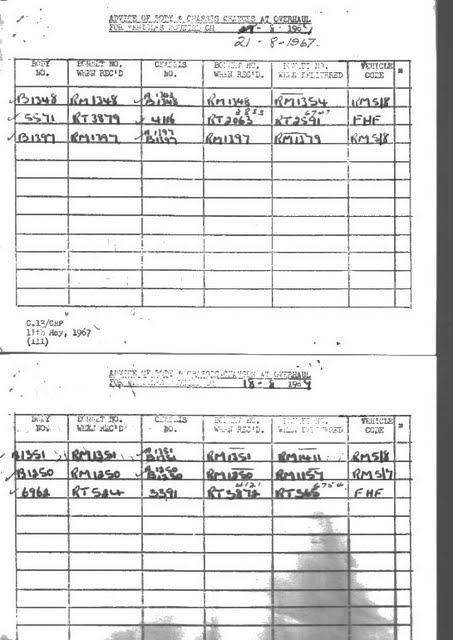 ADVICE OF BODY & CHASSIS CHANGES AT OVERHAUL
FOR VEHICLES 8 1967
21-8-1967.
BODY NO. BONNET NO. WHEN REC'D CHASSIS NO. BONNET NO. WHEN REC'D. BONNET NO. WHEN DELIVERED VEHICLE CODE *
B1348 RM1348 B1348 RM1348 RM1354 RM5/8
2853 6747
5571 RT3879 4116 RT2063 RT2591 FHF
B1397 RM1397 RM1397 RM1379 RM5/8
C.17/CHP
11th May, 1967
(111)
ADVICE OF BODY & CHASSIS CHANGES AT OVERHAUL
FOR VEHICLES 18-8 1967
BODY NO. BONNET NO. WHEN REC'D CHASSIS NO. BONNET NO. WHEN REC'D. BONNET NO. WHEN DELIVERED VEHICLE CODE *
B1351 RM1351 B1351 RM1351 RM1411 RM5/8
B1250 RM1250 B1250 RM1250 RM1157 RM5/7
4121 6754
6962 RT524 3391 RT3872 FHF